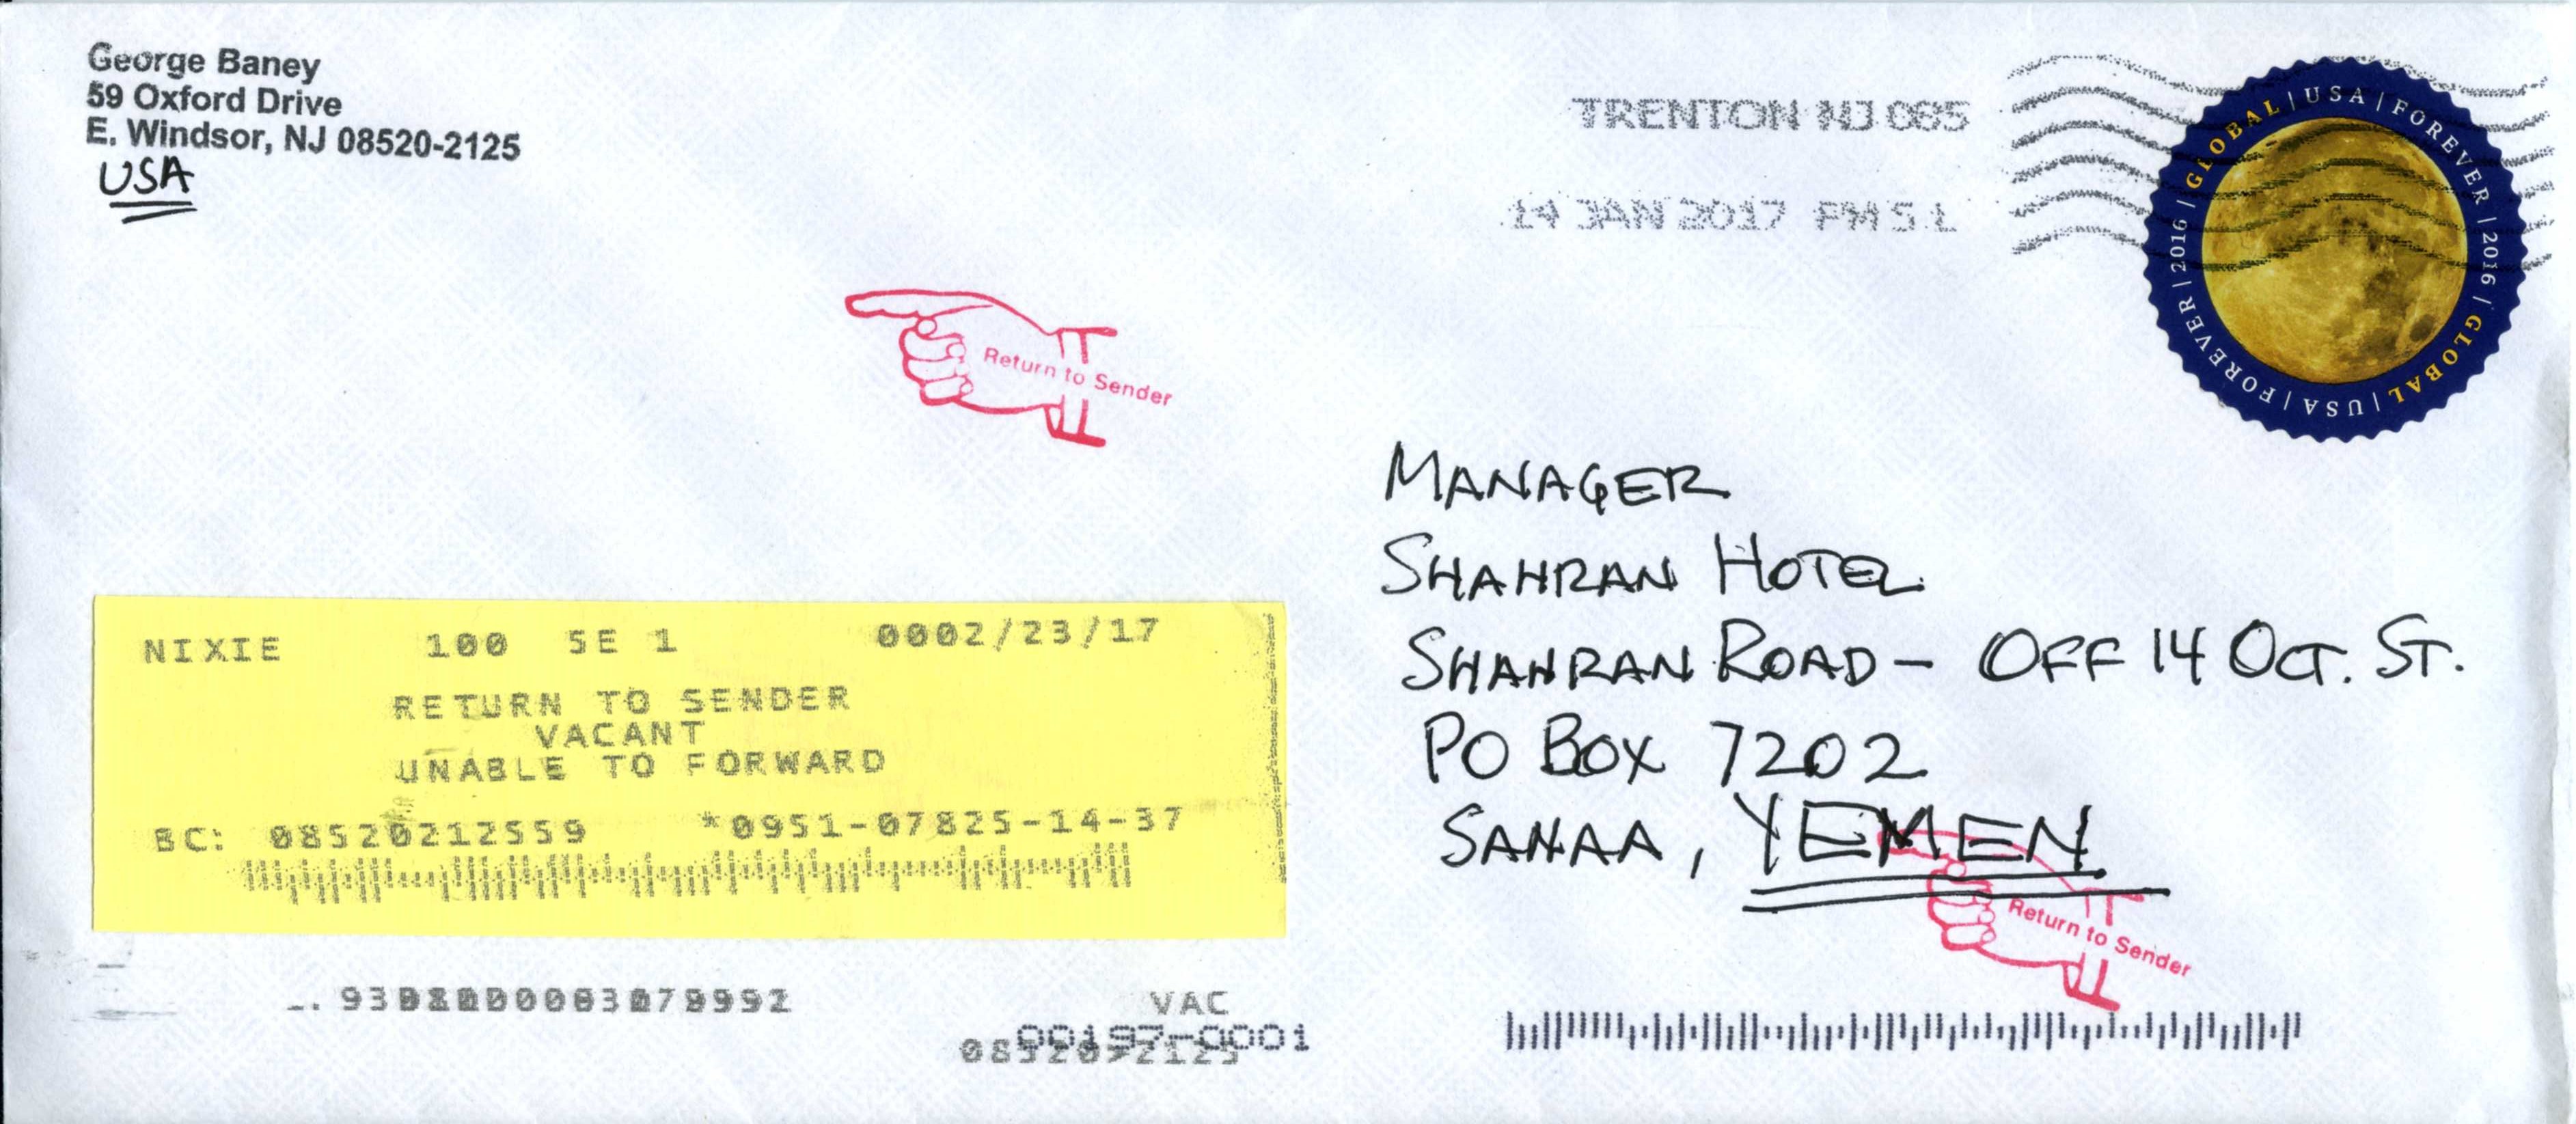 George Baney
59 Oxford Drive
E. Windsor, NJ 08520-2125
USA
TRENTON NJ 085
14 JAN 2017 PM 5 L
GLOBAL | USA | FOREVER | 2016 | GLOBAL | USA | FOREVER | 2016 |
Return to Sender
MANAGER
SHAHRAN HOTEL
SHAHRAN ROAD - OFF 14 OCT. ST.
PO BOX 7202
SANAA, YEMEN
Return to Sender
NIXIE 100 SE 1 0002/23/17
RETURN TO SENDER
VACANT
UNABLE TO FORWARD
BC: 08520212559 *0951-07825-14-37
VAC